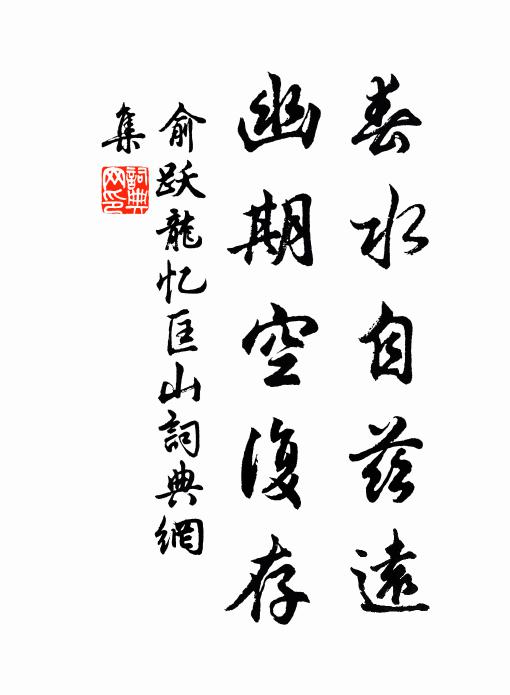 春水自茲遠
幽期空復存
俞跃龍忆匡山詞典網
集
詞典
网印